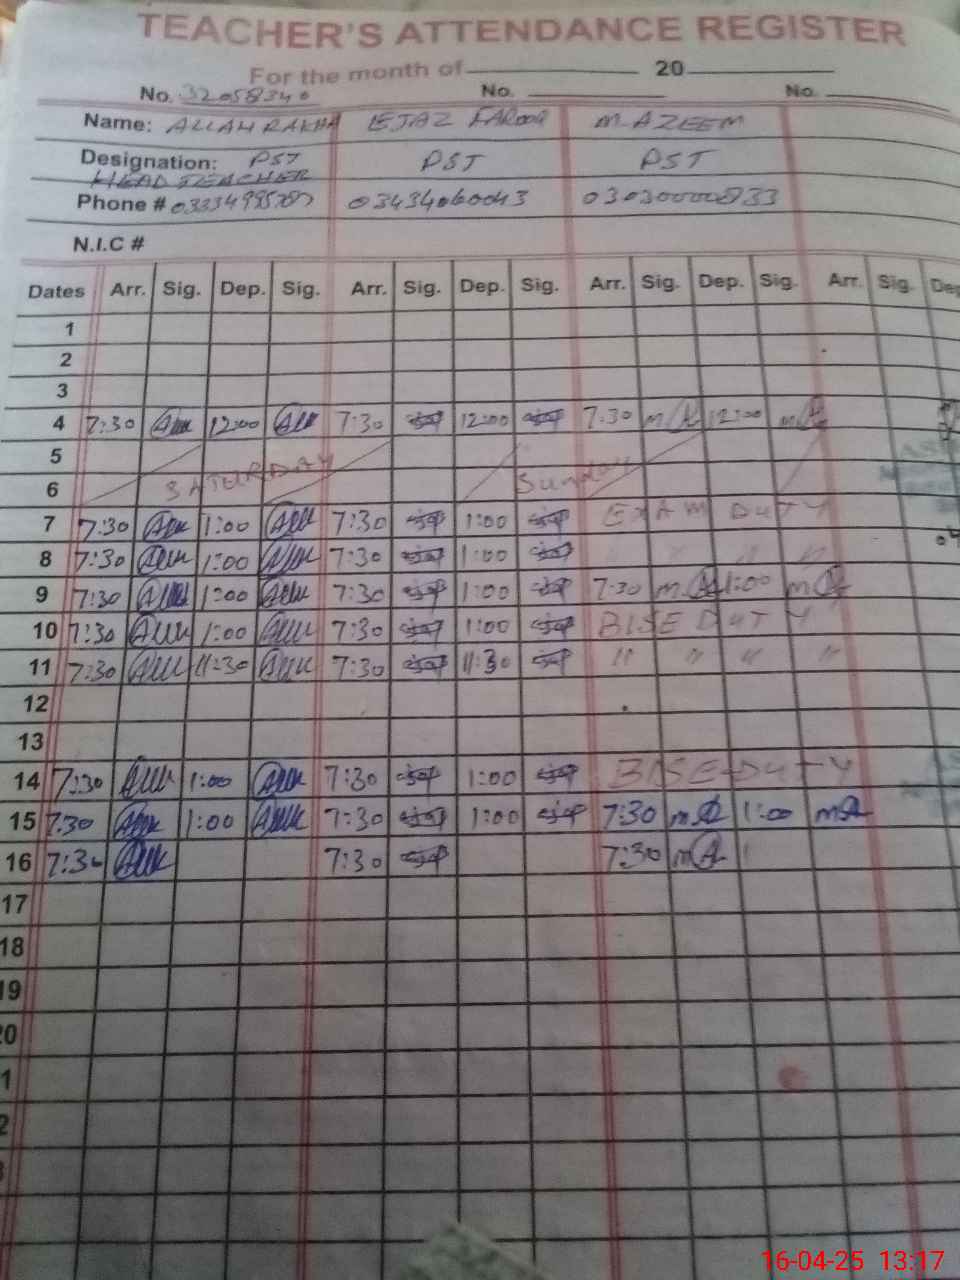 TEACHER'S ATTENDANCE REGISTER
For the month of 20
No. 32058340 No. No.
Name: ALLAH RAKHA EJAZ FAROOQ M. AZEEM
Designation: PST PST PST
HEAD TEACHER
Phone # 03434060043 03030000833
N.I.C #
Dates Arr. Sig. Dep. Sig. Arr. Sig. Dep. Sig. Arr. Sig. Dep. Sig. Arr. Sig. Dep
1
2
3
4 7:30 12:00 7:30 12:00 7:30 12:00
5
6 SATURDAY Sunday
7 7:30 1:00 7:30 1:00 EXAM DUTY
8 7:30 1:00 7:30 1:00 〃 〃
9 7:30 1:00 7:30 1:00 7:30 1:00
10 7:30 1:00 7:30 1:00 BISE DUTY
11 7:30 11:30 7:30 11:30 〃 〃 〃 〃
12
13
14 7:30 1:00 7:30 1:00 BISE DUTY
15 7:30 1:00 7:30 1:00 7:30 1:00
16 7:30 7:30 7:30
17
18
19
20
1
2
3
16-04-25 13:17